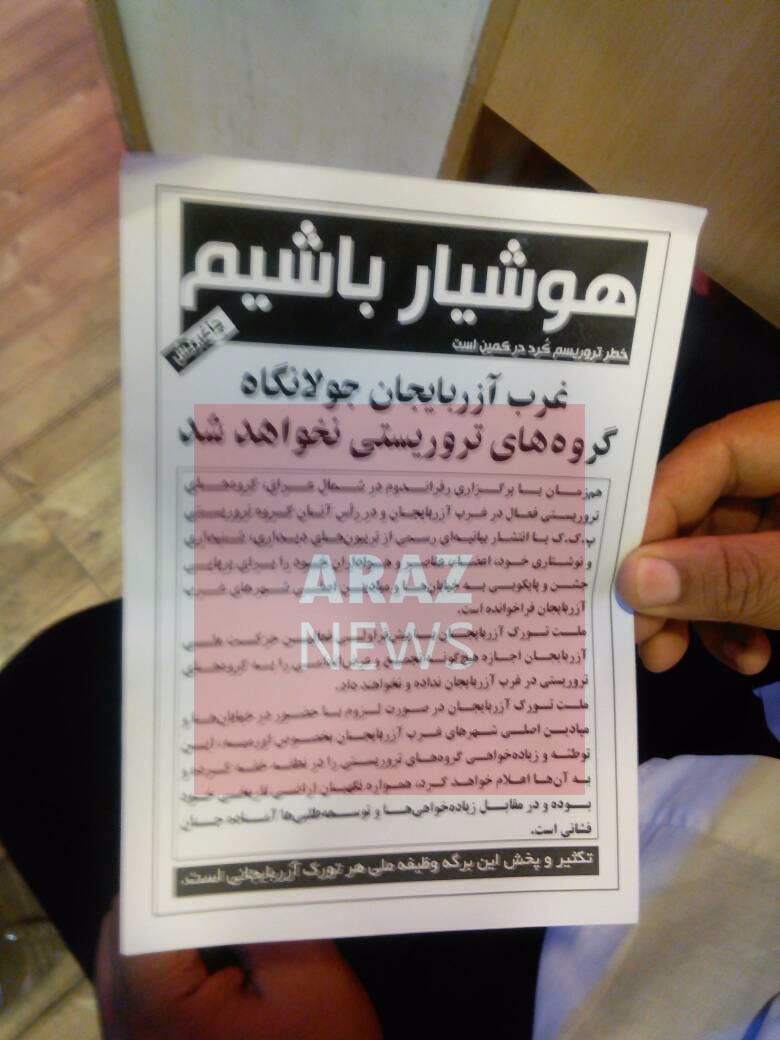 هوشیار باشیم
خطر تروریسم کُرد در کمین است
غرب آزربایجان جولانگاه
گروه‌های تروریستی نخواهد شد
همزمان با برگزاری رفراندوم در شمال عراق، گروه‌های
تروریستی فعال در غرب آزربایجان و در رأس آنان گروه تروریستی
پ.ک.ک با انتشار بیانیه‌ای رسمی از تریبون‌های دیداری، شنیداری
و نوشتاری خود، اعضا، عناصر و هواداران خود را برای برپایی
جشن و پایکوبی به خیابان‌ها و میادین اصلی شهرهای غرب
آزربایجان فراخوانده است.
ملت تورک آزربایجان حرکت ملی
آزربایجان اجازه هیچ‌گونه تجمع و را به گروه‌های
تروریستی در غرب آزربایجان نداده و نخواهند داد.
ملت تورک آزربایجان در صورت لزوم با حضور در خیابان‌ها و
میادین اصلی شهرهای غرب آزربایجان بخصوص اورمیه، این
توطئه و زیاده‌خواهی گروه‌های تروریستی را در نطفه خفه کرده و
به آن‌ها اعلام خواهد کرد، همواره نگهبان اراضی تاریخی خود
بوده و در مقابل زیاده‌خواهی‌ها و توسعه‌طلبی‌ها آماده جان
فشانی است.
تکثیر و پخش این برگه وظیفه ملی هر تورک آزربایجانی است.
ARAZ
NEWS